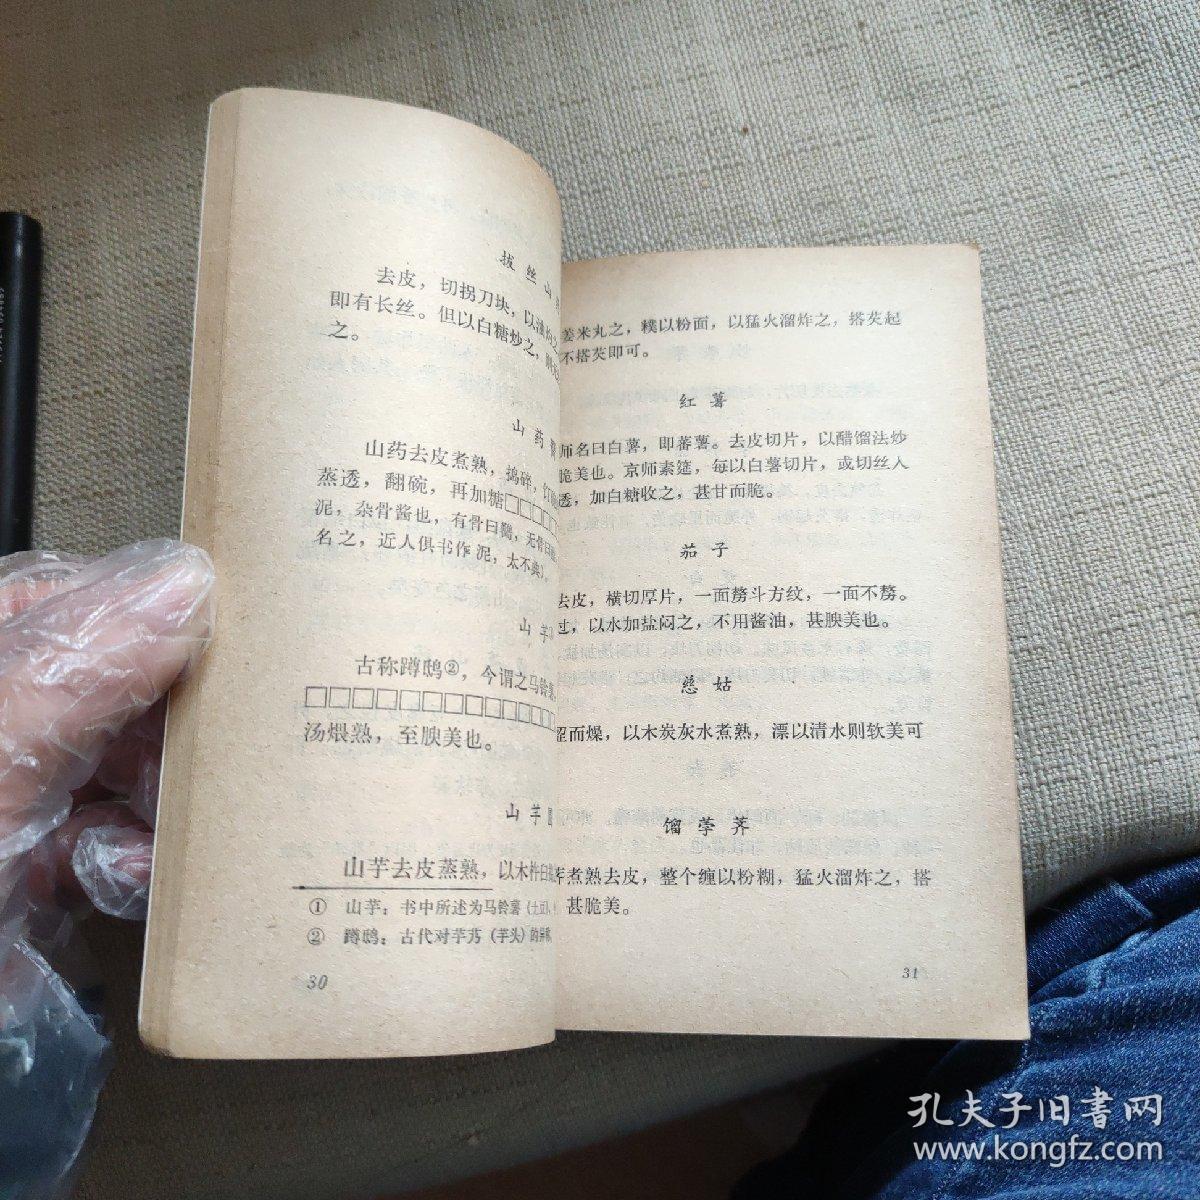 拔丝山
去皮，切拐刀块，以油
即有长丝。但以白糖炒之，
之。
山药
山药去皮煮熟，捣碎，
蒸透，翻碗，再加糖□□□□
泥，杂骨酱也，有骨曰臡，无骨曰
名之，近人俱书作泥，太不典）。
山芋
古称蹲鸱②，今谓之马铃
□□□□□□□□□□□□□
汤煨熟，至腴美也。
山芋
山芋去皮蒸熟，以木杵臼
① 山芋：书中所述为马铃薯（土豆）
② 蹲鸱：古代对芋艿（芋头）的异称
30
姜米丸之，糗以粉面，以猛火溜炸之，搭芡起
不搭芡即可。
红薯
师名曰白薯，即蕃薯。去皮切片，以醋馏法炒
脆美也。京师素筵，每以白薯切片，或切丝入
透，加白糖收之，甚甘而脆。
茄子
去皮，横切厚片，一面剺斗方纹，一面不剺。
过，以水加盐闷之，不用酱油，甚腴美也。
慈姑
涩而燥，以木炭灰水煮熟，漂以清水则软美可
馏荸荠
荠煮熟去皮，整个缠以粉糊，猛火溜炸之，搭
甚脆美。
31
孔夫子旧书网
www.kongfz.com